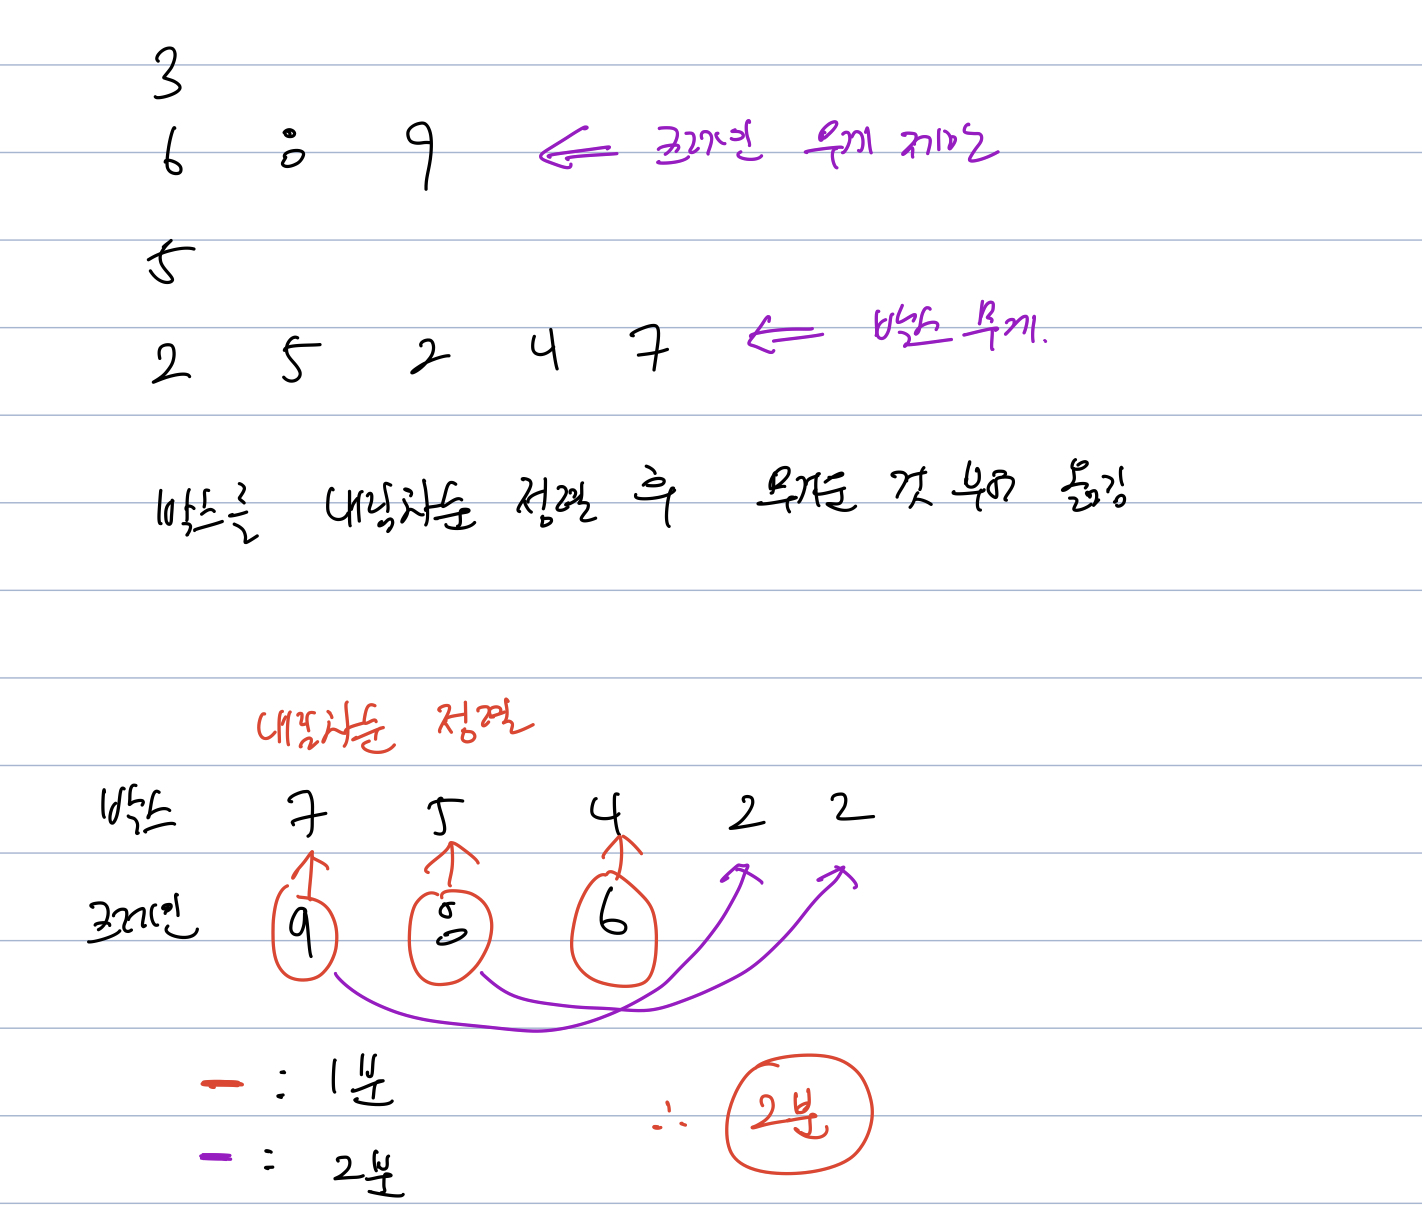 3
6 8 9 ⇐ 크레인 무게 제한
5
2 5 2 4 7 ⇐ 박스 무게.
박스를 내림차순 정렬 후 무거운 것 부터 옮김
내림차순 정렬
박스 7 5 4 2 2
크레인 9 8 6
- : 1분
- : 2분
∴ 2분